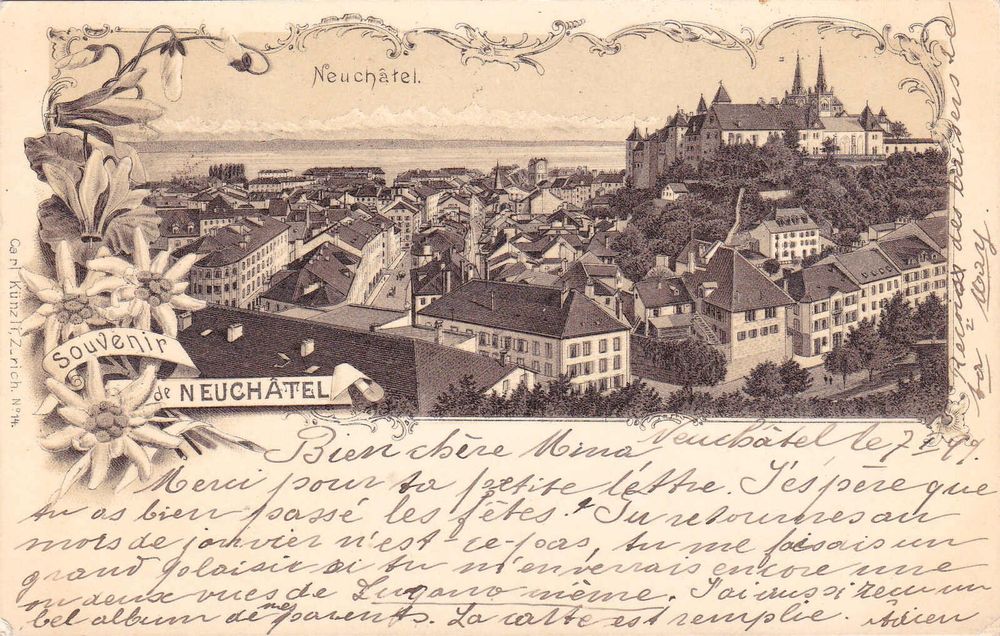 Neuchâtel.
Souvenir
de NEUCHÂTEL
Carl Künzli, Zürich. No 14.
Neuchâtel, le 7 I 99.
Bien chère Mina
Merci pour ta petite lettre. J'éspère que
tu as bien passé les fêtes. Tu retournes au
mois de janvier n'est-ce-pas, tu me faisais un
grand plaisir si tu m'enverrais encore une
ou deux vues de Lugano même. J'ai aussi reçu un
bel album de mes parents. La carte est remplie. Adieu
Reçois des baisers de
ta